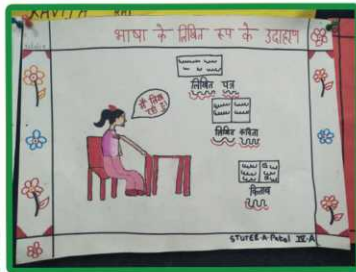 KAVITA RAI
भाषा के लिखित रूप के उदाहरण
मैं लिख
रही हूँ।
लिखित पत्र
लिखित कविता
किताब
STUTEE-A-Patel IV-A